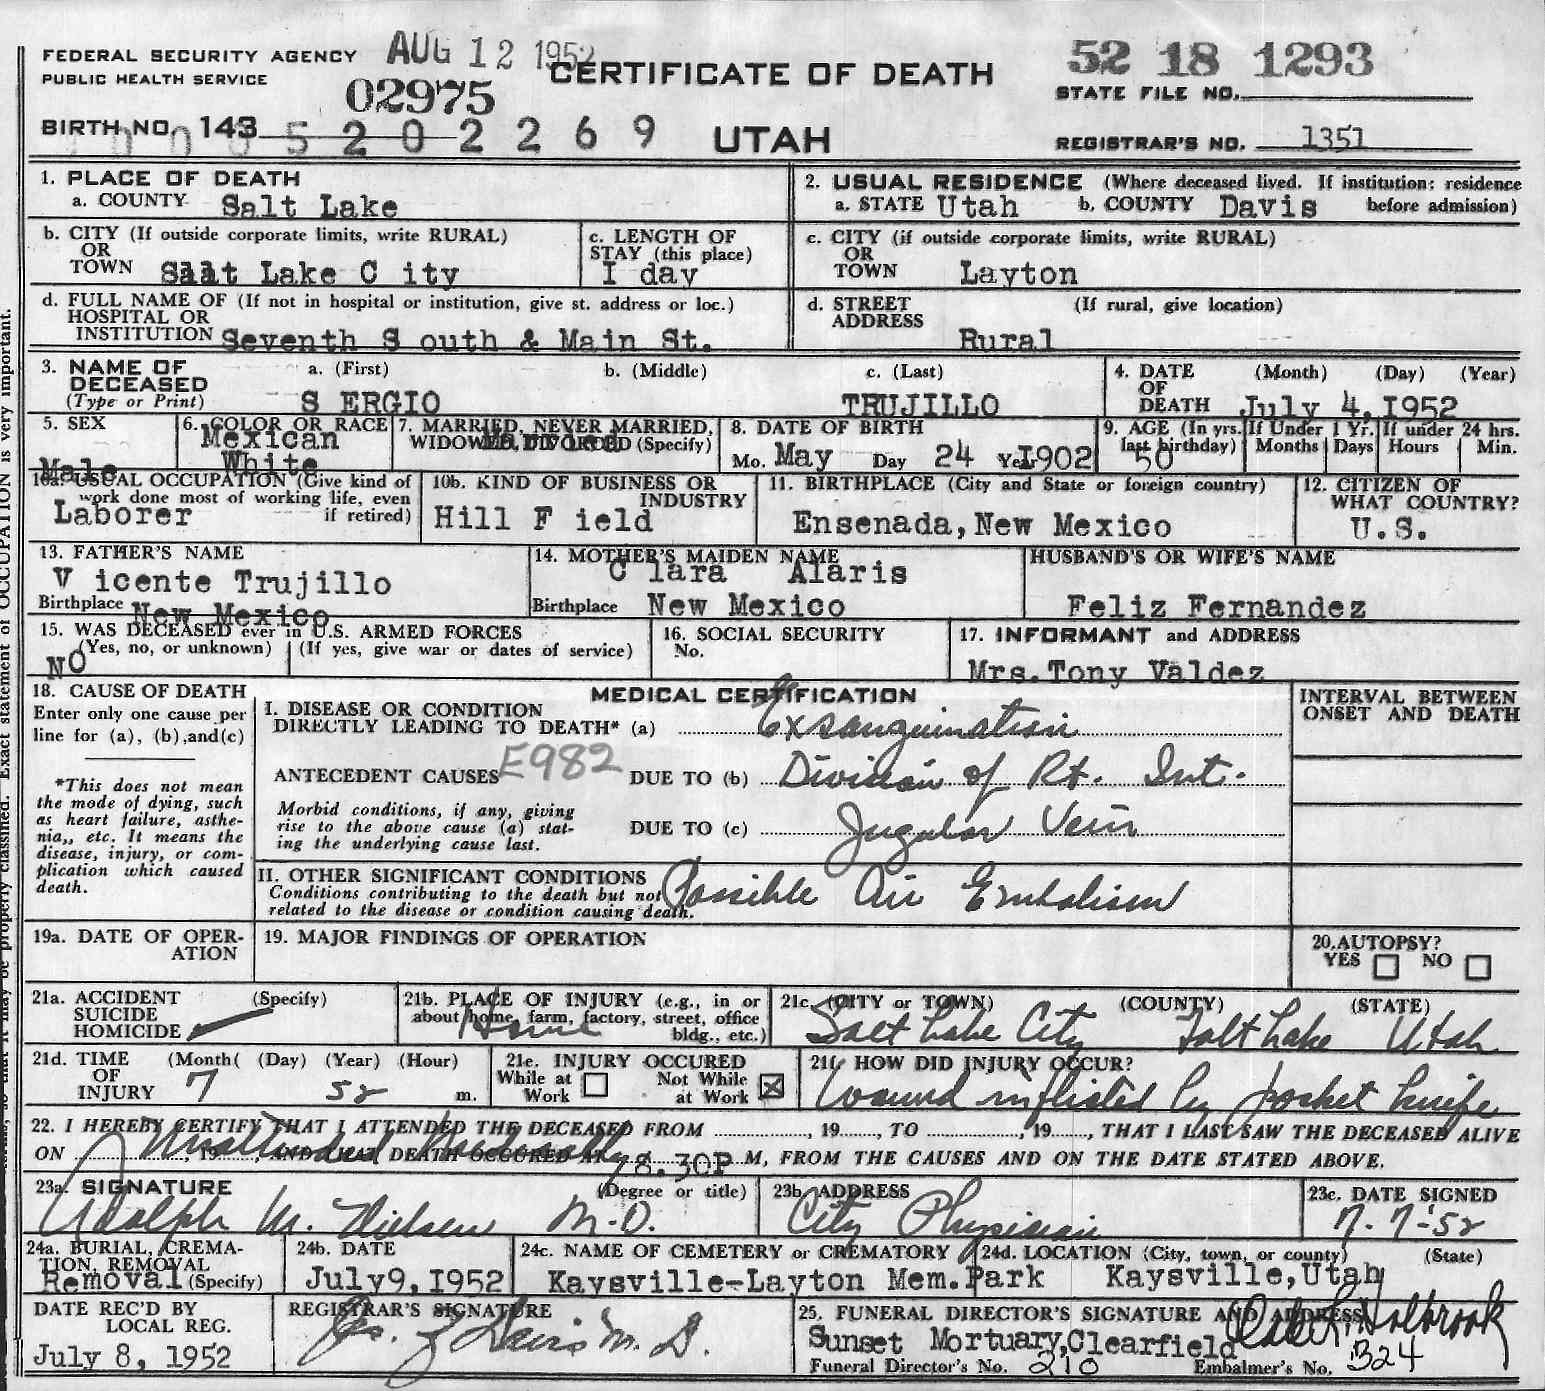 FEDERAL SECURITY AGENCY AUG 12 1952
PUBLIC HEALTH SERVICE
CERTIFICATE OF DEATH
52 18 1293
STATE FILE NO.
02975
BIRTH NO. 143 5 2 0 2 2 6 9
UTAH
REGISTRAR'S NO. 1351
1. PLACE OF DEATH
a. COUNTY Salt Lake
2. USUAL RESIDENCE (Where deceased lived. If institution: residence before admission)
a. STATE Utah b. COUNTY Davis
b. CITY (If outside corporate limits, write RURAL)
OR
TOWN Salt Lake C ity
c. LENGTH OF
STAY (this place)
I day
c. CITY (if outside corporate limits, write RURAL)
OR
TOWN Layton
d. FULL NAME OF (If not in hospital or institution, give st. address or loc.)
HOSPITAL OR
INSTITUTION Seventh S outh & Main St.
d. STREET (If rural, give location)
ADDRESS
Rural
3. NAME OF
DECEASED
(Type or Print)
a. (First) b. (Middle) c. (Last)
S ERGIO TRUJILLO
4. DATE (Month) (Day) (Year)
OF
DEATH July 4, I952
5. SEX
Male
6. COLOR OR RACE
Mexican
White
7. MARRIED, NEVER MARRIED,
WIDOWED, DIVORCED (Specify)
8. DATE OF BIRTH
Mo. May Day 24 Year I902
9. AGE (In yrs. last birthday) If Under 1 Yr. If under 24 hrs.
50 Months Days Hours Min.
10a. USUAL OCCUPATION (Give kind of
work done most of working life, even
if retired)
Laborer
10b. KIND OF BUSINESS OR
INDUSTRY
Hill F ield
11. BIRTHPLACE (City and State or foreign country)
Ensenada, New Mexico
12. CITIZEN OF
WHAT COUNTRY?
U.S.
13. FATHER'S NAME
V icente Trujillo
Birthplace New Mexico
14. MOTHER'S MAIDEN NAME
C lara Alaris
Birthplace New Mexico
HUSBAND'S OR WIFE'S NAME
Feliz Fernandez
15. WAS DECEASED ever in U.S. ARMED FORCES
(Yes, no, or unknown) (If yes, give war or dates of service)
NO
16. SOCIAL SECURITY
No.
17. INFORMANT and ADDRESS
Mrs. Tony Valdez
18. CAUSE OF DEATH
Enter only one cause per
line for (a), (b), and (c)
*This does not mean
the mode of dying, such
as heart failure, asthe-
nia,, etc. It means the
disease, injury, or com-
plication which caused
death.
MEDICAL CERTIFICATION
I. DISEASE OR CONDITION
DIRECTLY LEADING TO DEATH* (a) Exsanguination
ANTECEDENT CAUSES E982 DUE TO (b) Division of Rt. Int.
Morbid conditions, if any, giving
rise to the above cause (a) stat-
ing the underlying cause last.
DUE TO (c) Jugular Vein
II. OTHER SIGNIFICANT CONDITIONS
Conditions contributing to the death but not
related to the disease or condition causing death.
Possible Air Embolism
INTERVAL BETWEEN
ONSET AND DEATH
19a. DATE OF OPER-
ATION
19. MAJOR FINDINGS OF OPERATION
20. AUTOPSY?
YES NO
21a. ACCIDENT (Specify)
SUICIDE
HOMICIDE
21b. PLACE OF INJURY (e.g., in or
about home, farm, factory, street, office
bldg., etc.)
Home
21c. (CITY or TOWN) (COUNTY) (STATE)
Salt Lake City Salt Lake Utah
21d. TIME (Month( (Day) (Year) (Hour)
OF
INJURY 7 52 m.
21e. INJURY OCCURED
While at Work Not While at Work
21f. HOW DID INJURY OCCUR?
Wound inflicted by pocket knife
22. I HEREBY CERTIFY THAT I ATTENDED THE DECEASED FROM , 19 , TO , 19 , THAT I LAST SAW THE DECEASED ALIVE
ON , 19 , AND THAT DEATH OCCURED AT 8.30P M, FROM THE CAUSES AND ON THE DATE STATED ABOVE.
Unattended Medically
23a. SIGNATURE (Degree or title)
Adolph M. Nielsen M.D.
23b. ADDRESS
City Physician
23c. DATE SIGNED
7-7-52
24a. BURIAL, CREMA-
TION, REMOVAL
Removal (Specify)
24b. DATE
July9, I952
24c. NAME OF CEMETERY or CREMATORY
Kaysville-Layton Mem. Park
24d. LOCATION (City, town, or county) (State)
Kaysville, Utah
DATE REC'D BY
LOCAL REG.
July 8, 1952
REGISTRAR'S SIGNATURE
25. FUNERAL DIRECTOR'S SIGNATURE AND ADDRESS
Sunset Mortuary, Clearfield
Holbrook
Funeral Director's No. 210 Embalmer's No. 324